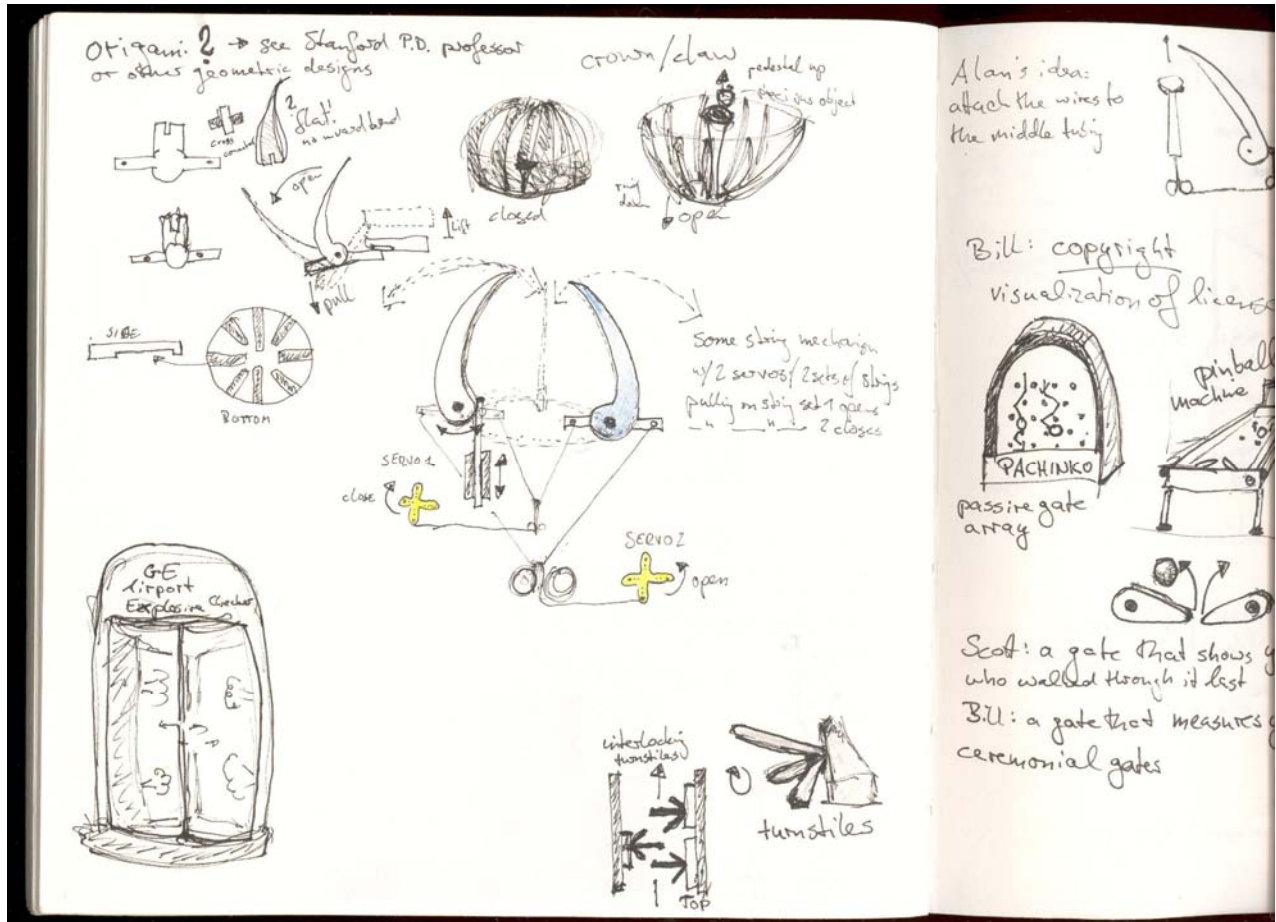 Origami? → see Stanford P.D. professor
or other geometric designs
crown/claw
pedestal up
precious object
cross
?
flat!
no inward bend
open
lift
pull
closed
ring
down
open
SIDE
BOTTOM
Some string mechanism
w/ 2 servos / 2 sets of strings
pulling on string set 1 opens
" " 2 closes
SERVO 1
close
SERVO 2
open
GE
Airport
Explosive Checker
interlocking
turnstiles
TOP
turnstiles
Alan's idea:
attach the wires to
the middle tubing
Bill: copyright
visualization of license
PACHINKO
passive gate
array
pinball
machine
Scott: a gate that shows
who walked through it last
Bill: a gate that measures
ceremonial gates